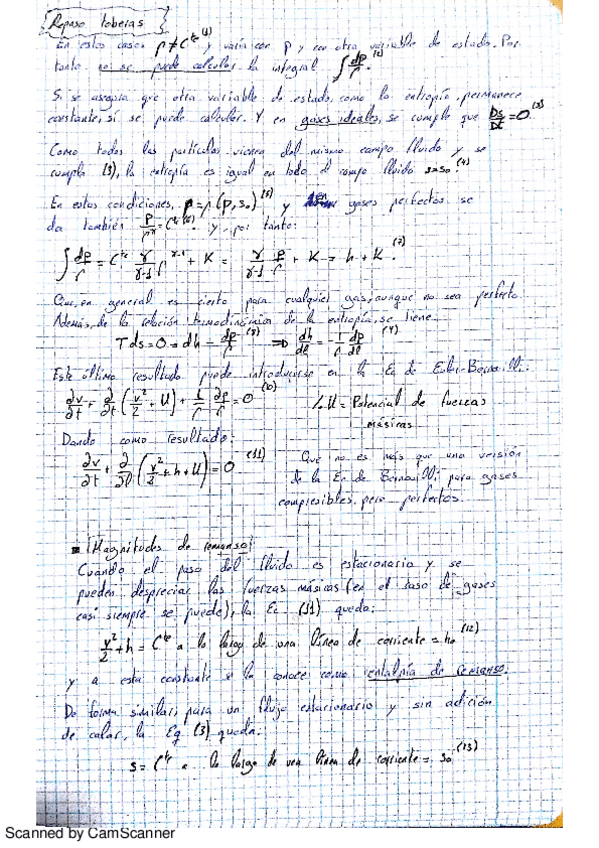 Repaso toberas
En estos casos ρ≠Cte (1) y varía con p y con otra variable de estado. Por
tanto no se puede calcular la integral ∫dp/ρ. (2)
Si se asegura que otra variable de estado, como la entropía, permanece
constante, sí se puede calcular. Y en gases ideales, se cumple que Ds/Dt=0 (3)
Como todas las partículas vienen del mismo campo fluido y se
cumple (3), la entropía es igual en todo el campo fluido s=s₀. (4)
En estas condiciones, ρ=ρ(p,s₀) (5) y gases perfectos se
da también p/ρ^γ=Cte (6) y, por tanto:
∫dp/ρ = Cte γ/γ-1 ρ^γ-1 + K = γ/γ-1 p/ρ + K = h + K. (7)
Que, en general es cierto para cualquier gas, aunque no sea perfecto.
Además, de la relación termodinámica de la entropía, se tiene
Tds=0=dh-dp/ρ (8) ⇒ dh/dl=-1/ρ dp/dl (9)
Este último resultado puede introducirse en la Ec de Euler-Bernoulli:
∂v/∂t + ∂/∂t(v²/2 + U) + 1/ρ ∂p/∂l = 0 (10)
U = Potencial de fuerzas
másicas
Dando como resultado:
∂v/∂t + ∂/∂l(v²/2 + h + U) = 0 (11)
Que no es más que una versión
de la Ec de Bernoulli para gases
compresibles, pero perfectos.
Magnitudes de remanso
Cuando el paso del fluido es estacionario y se
pueden despreciar las fuerzas másicas (en el caso de gases
casi siempre se puede), la Ec. (11) queda:
v²/2 + h = Cte a lo largo de una línea de corriente = h₀ (12)
y a esta constante se la conoce como entalpía de remanso.
De forma similar, para un flujo estacionario y sin adición
de calor, la Eq (3) queda:
s = Cte a lo largo de una línea de corriente = s₀ (13)
Scanned by CamScanner